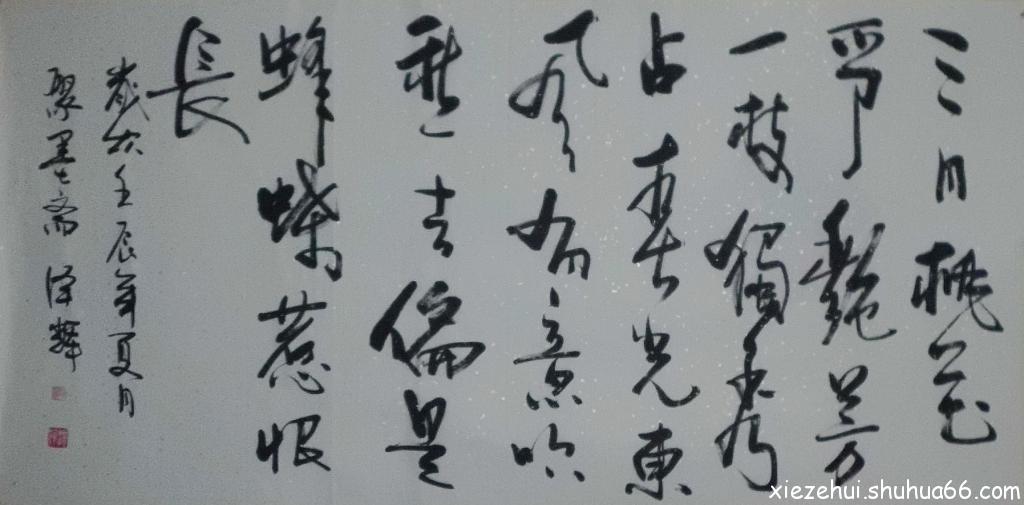 三月桃花
爭艷芳
一枝獨秀
占春光東
風有意吹
愁去偏是
蜂蝶惹恨
長
歲次壬辰年夏月
聚墨斋 泽輝
xiezehui.shuhua66.com